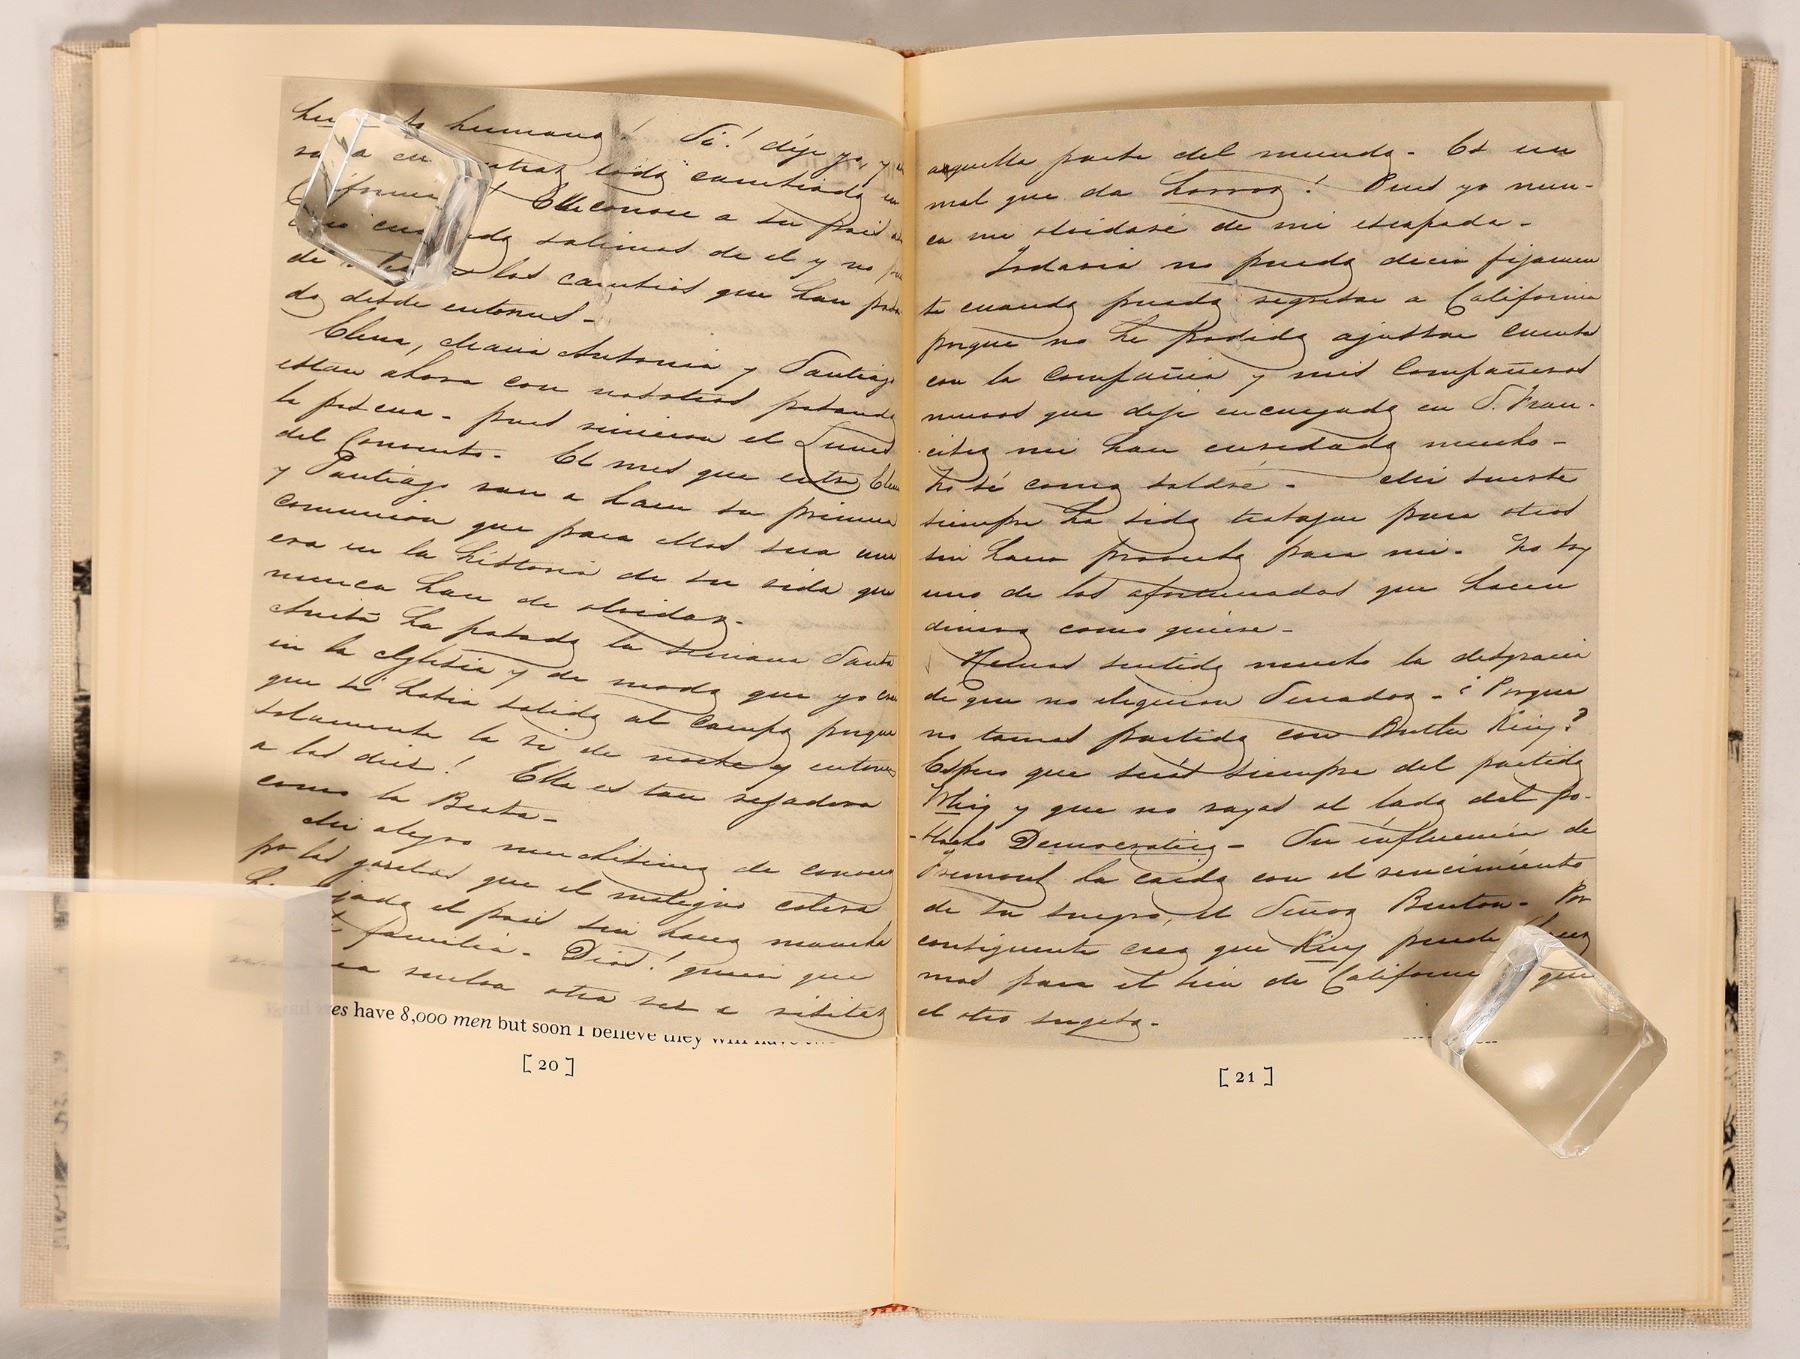 humana! Si! dije yo, y
toda cambiada
Ella conoce a su pais
salimos de el y no
de los cambios que han pasa
do desde entonces-
Elena, Maria Antonia y Santiago
estan ahora con nosotros pasando
la pascua- pues vinieron el Lunes
del Convento- El mes que entra Elena
y Santiago van a hacer su primera
comunion que para ellos sera una
era en la historia de su vida que
nunca han de olvidar-
Anita ha pasado la semana Santa
en la Iglesia y de modo que yo crei
que se habia salido al campo porque
solamente la vi de noche y entonces
a las diez! Ella es tan rezadora
como la Beata-
Mi alegro muchisimo de conocer
por las gacetas que el maligno colera
el pais sin hacer mancha
familia- Dios! quiera que
vuelva otra vez a visitar
have 8,000 men but soon I believe they will have
[ 20 ]
aquella parte del mundo- Es un
mal que da horror! Pues yo nun-
ca me olvidaré de mi escapada-
Todavia no puedo decir fijamen
te cuando pueda regresar a California
porque no he podido ajustar cuenta
con la Compañia y mis Compañeros
nuevos que deje encargado en S. Fran-
cisco mi han enredado mucho-
No sé como saldré- Mi suerte
siempre ha sido trabajar para otros
sin hacer provecho para mi- No soy
uno de los afortunados que hacen
dinero como quiere-
Hemos sentido mucho la desgracia
de que no eligieron Senador- ¿Porque
no tomas partido con Butler King?
Espero que serás siempre del partido
Whig y que no vayas al lado del po-
Democratico- Su influencia de
Fremont ha caido con el vencimiento
de su suegro, el Señor Benton- Por
consiguiente creo que King puede hacer
mas para el bien de California que
el otro sugeto-
[ 21 ]